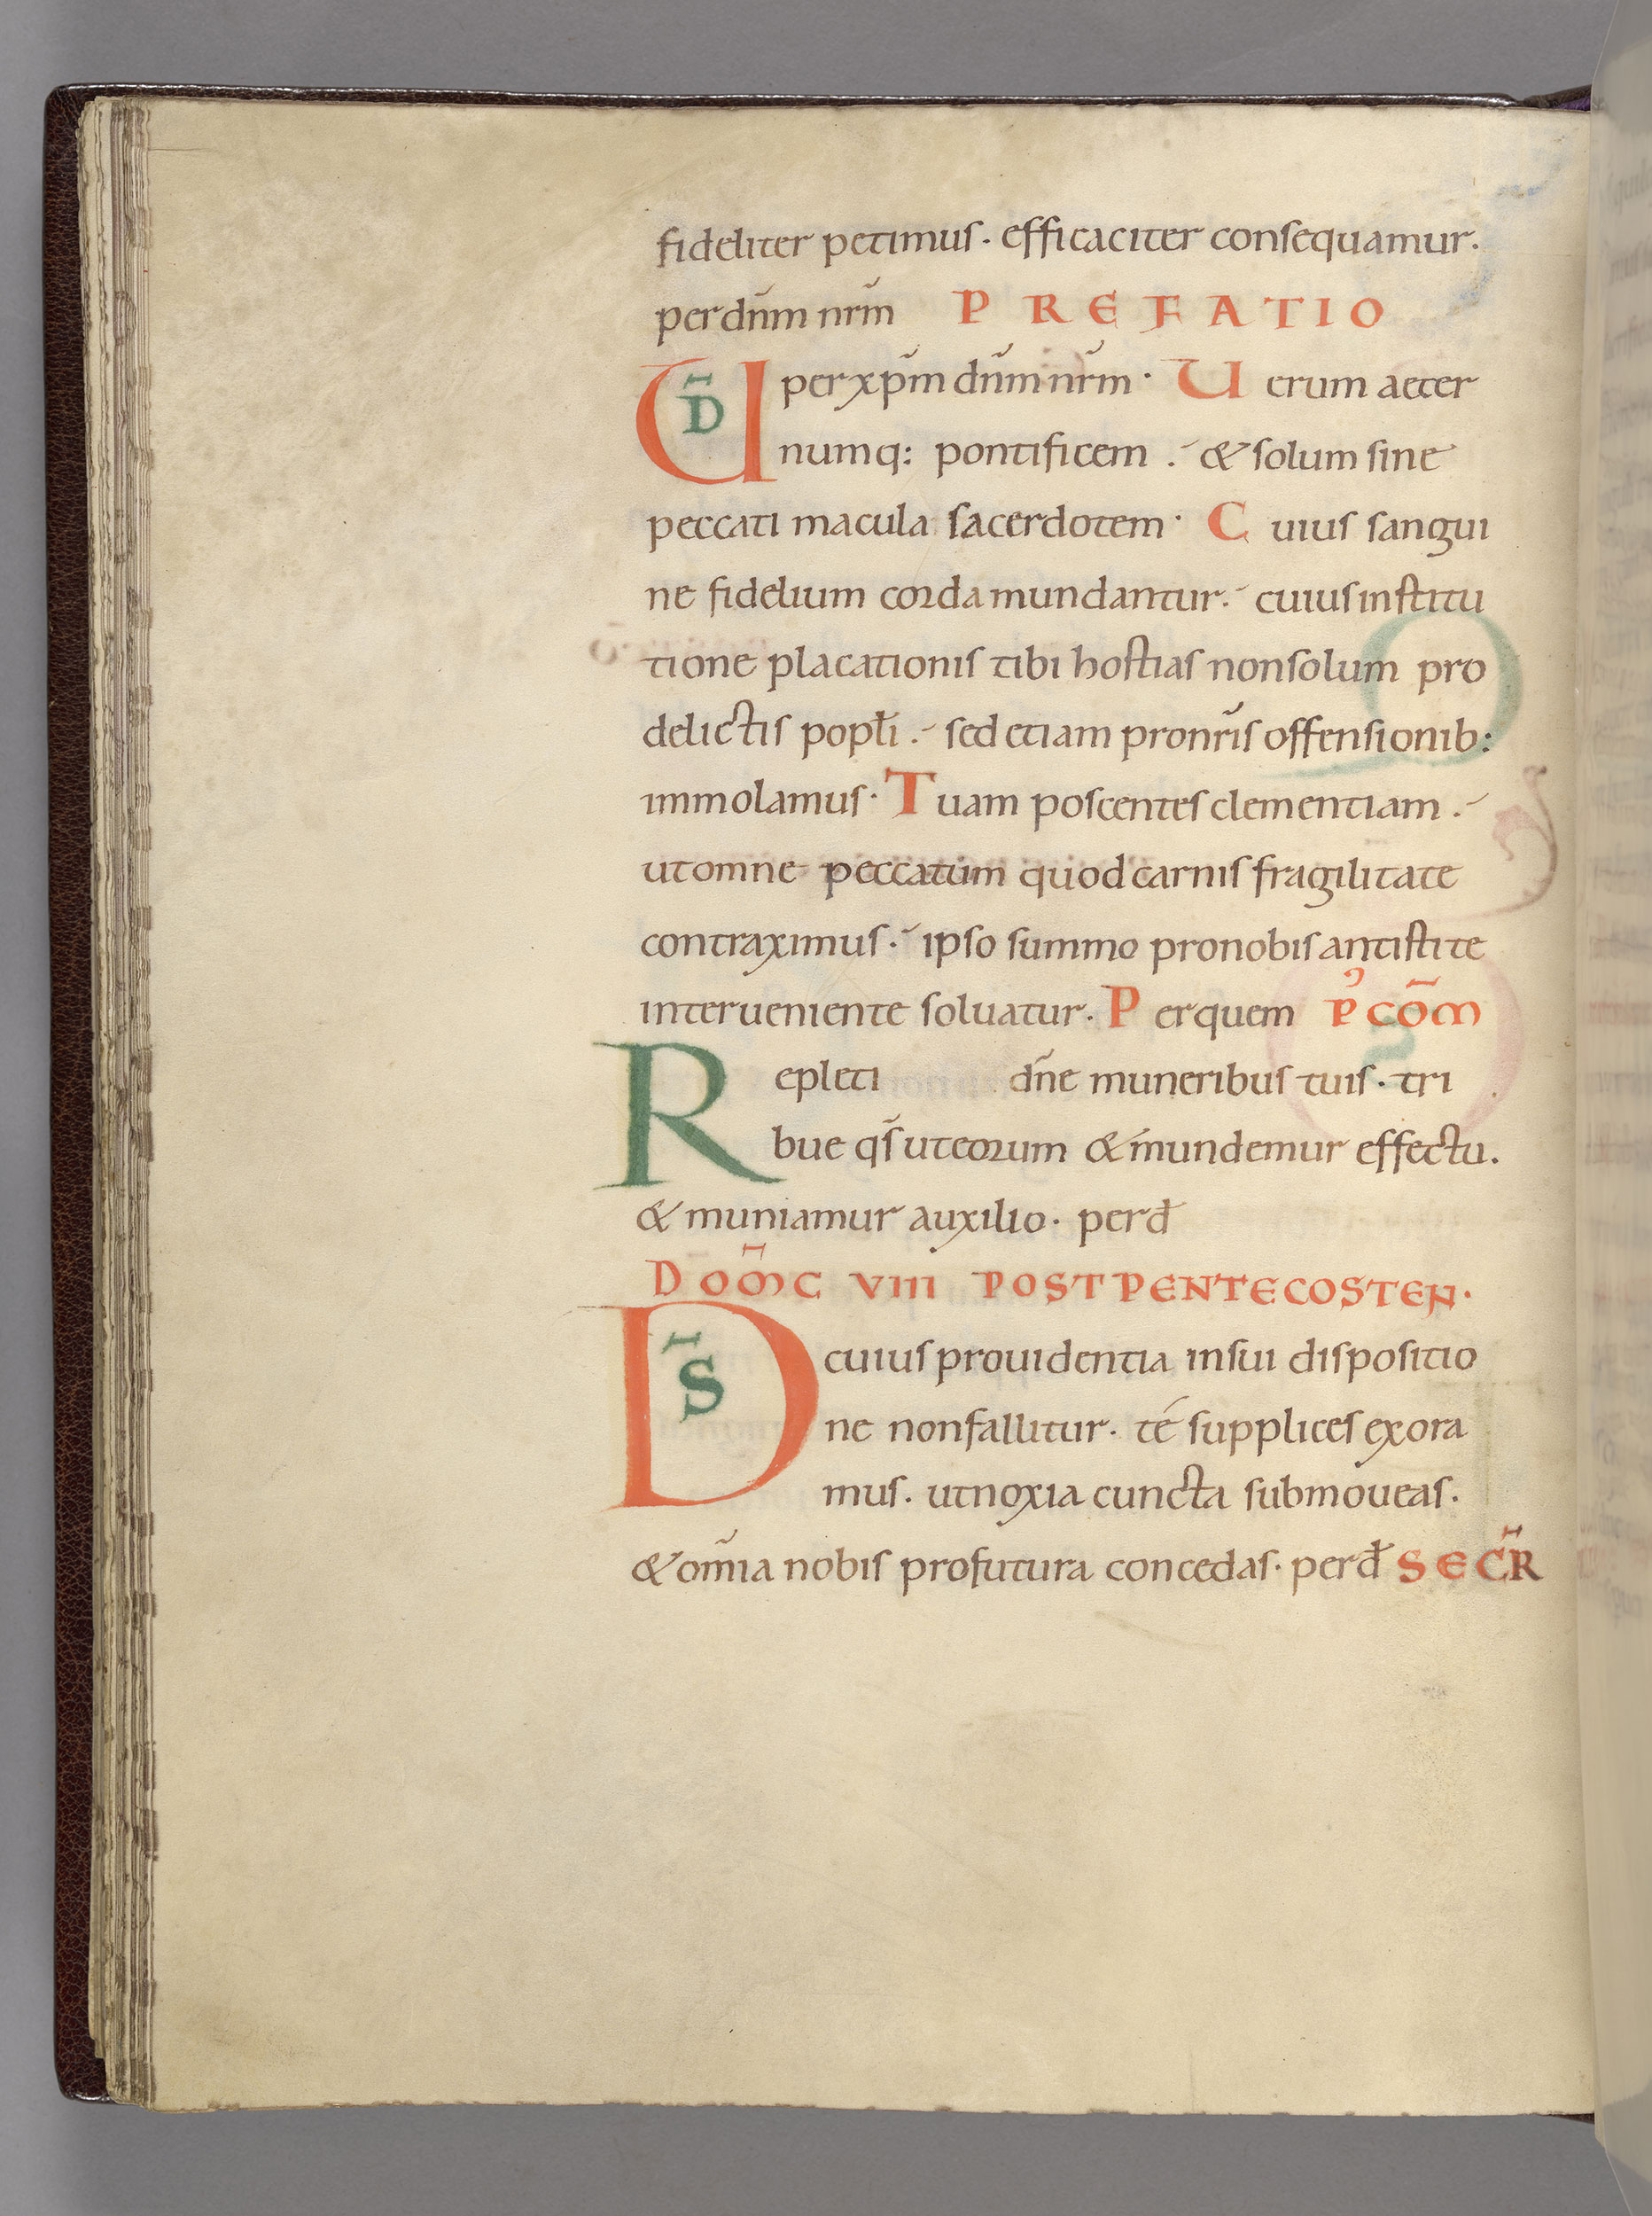 fideliter petimus · efficaciter consequamur.
per dn̄m nr̄m PREFATIO
UD̄ per xp̄m dn̄m nr̄m · Uerum aeter
numq: pontificem . & solum sine
peccati macula sacerdotem · Cuius sangui
ne fidelium corda mundantur. cuius institu
tione placationis tibi hostias non solum pro
delictis popl̄i . sed etiam pro nr̄is offensionib:
immolamus · Tuam poscentes clementiam .
ut omne peccatum quod carnis fragilitate
contraximus · ipso summo pro nobis antistite
interueniente soluatur. Per quem P' CŌM
Repleti dn̄e muneribus tuis · tri
bue qs̄ ut eorum & mundemur effectu.
& muniamur auxilio · per d̄
DOM̄C VIII POST PENTECOSTEN ·
DS̄ cuius prouidentia in sui dispositio
ne non fallitur · té supplices exora
mus · ut noxia cuncta submoueas ·
& om̄ia nobis profutura concedas · per d̄ SECR̄